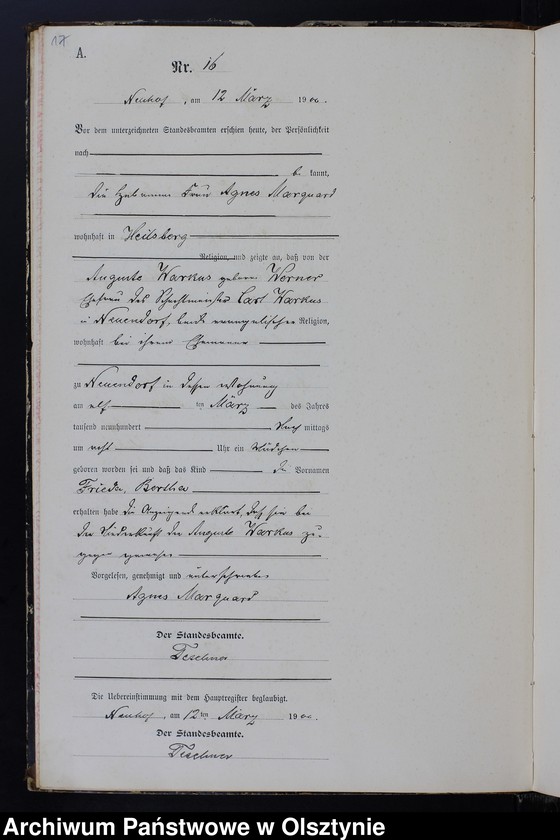 17
A.
Nr. 16
Neuhof, am 12 März 1900.
Vor dem unterzeichneten Standesbeamten erschien heute, der Persönlichkeit
nach
be kannt,
die Hebamme Frau Agnes Marquard
wohnhaft in Heilsberg
Religion, und zeigte an, daß von der
Auguste Warkus geborne Werner
Ehefrau des Carl Warkus
in Neuendorf, beide evangelischer Religion,
wohnhaft bei ihrem Ehemanne
zu Neuendorf in dessen Wohnung
am elf ten März des Jahres
tausend neunhundert Nach mittags
um acht Uhr ein Mädchen
geboren worden sei und daß das Kind die Vornamen
Frieda, Bertha
erhalten habe die Anzeigende erklärt, daß sie bei
der Niederkunft der Auguste Warkus zu-
gegen gewesen
Vorgelesen, genehmigt und unterschrieben
Agnes Marquard
Der Standesbeamte.
Teschner
Die Uebereinstimmung mit dem Hauptregister beglaubigt.
Neuhof, am 12ten März 1900.
Der Standesbeamte.
Teschner
Archiwum Państwowe w Olsztynie